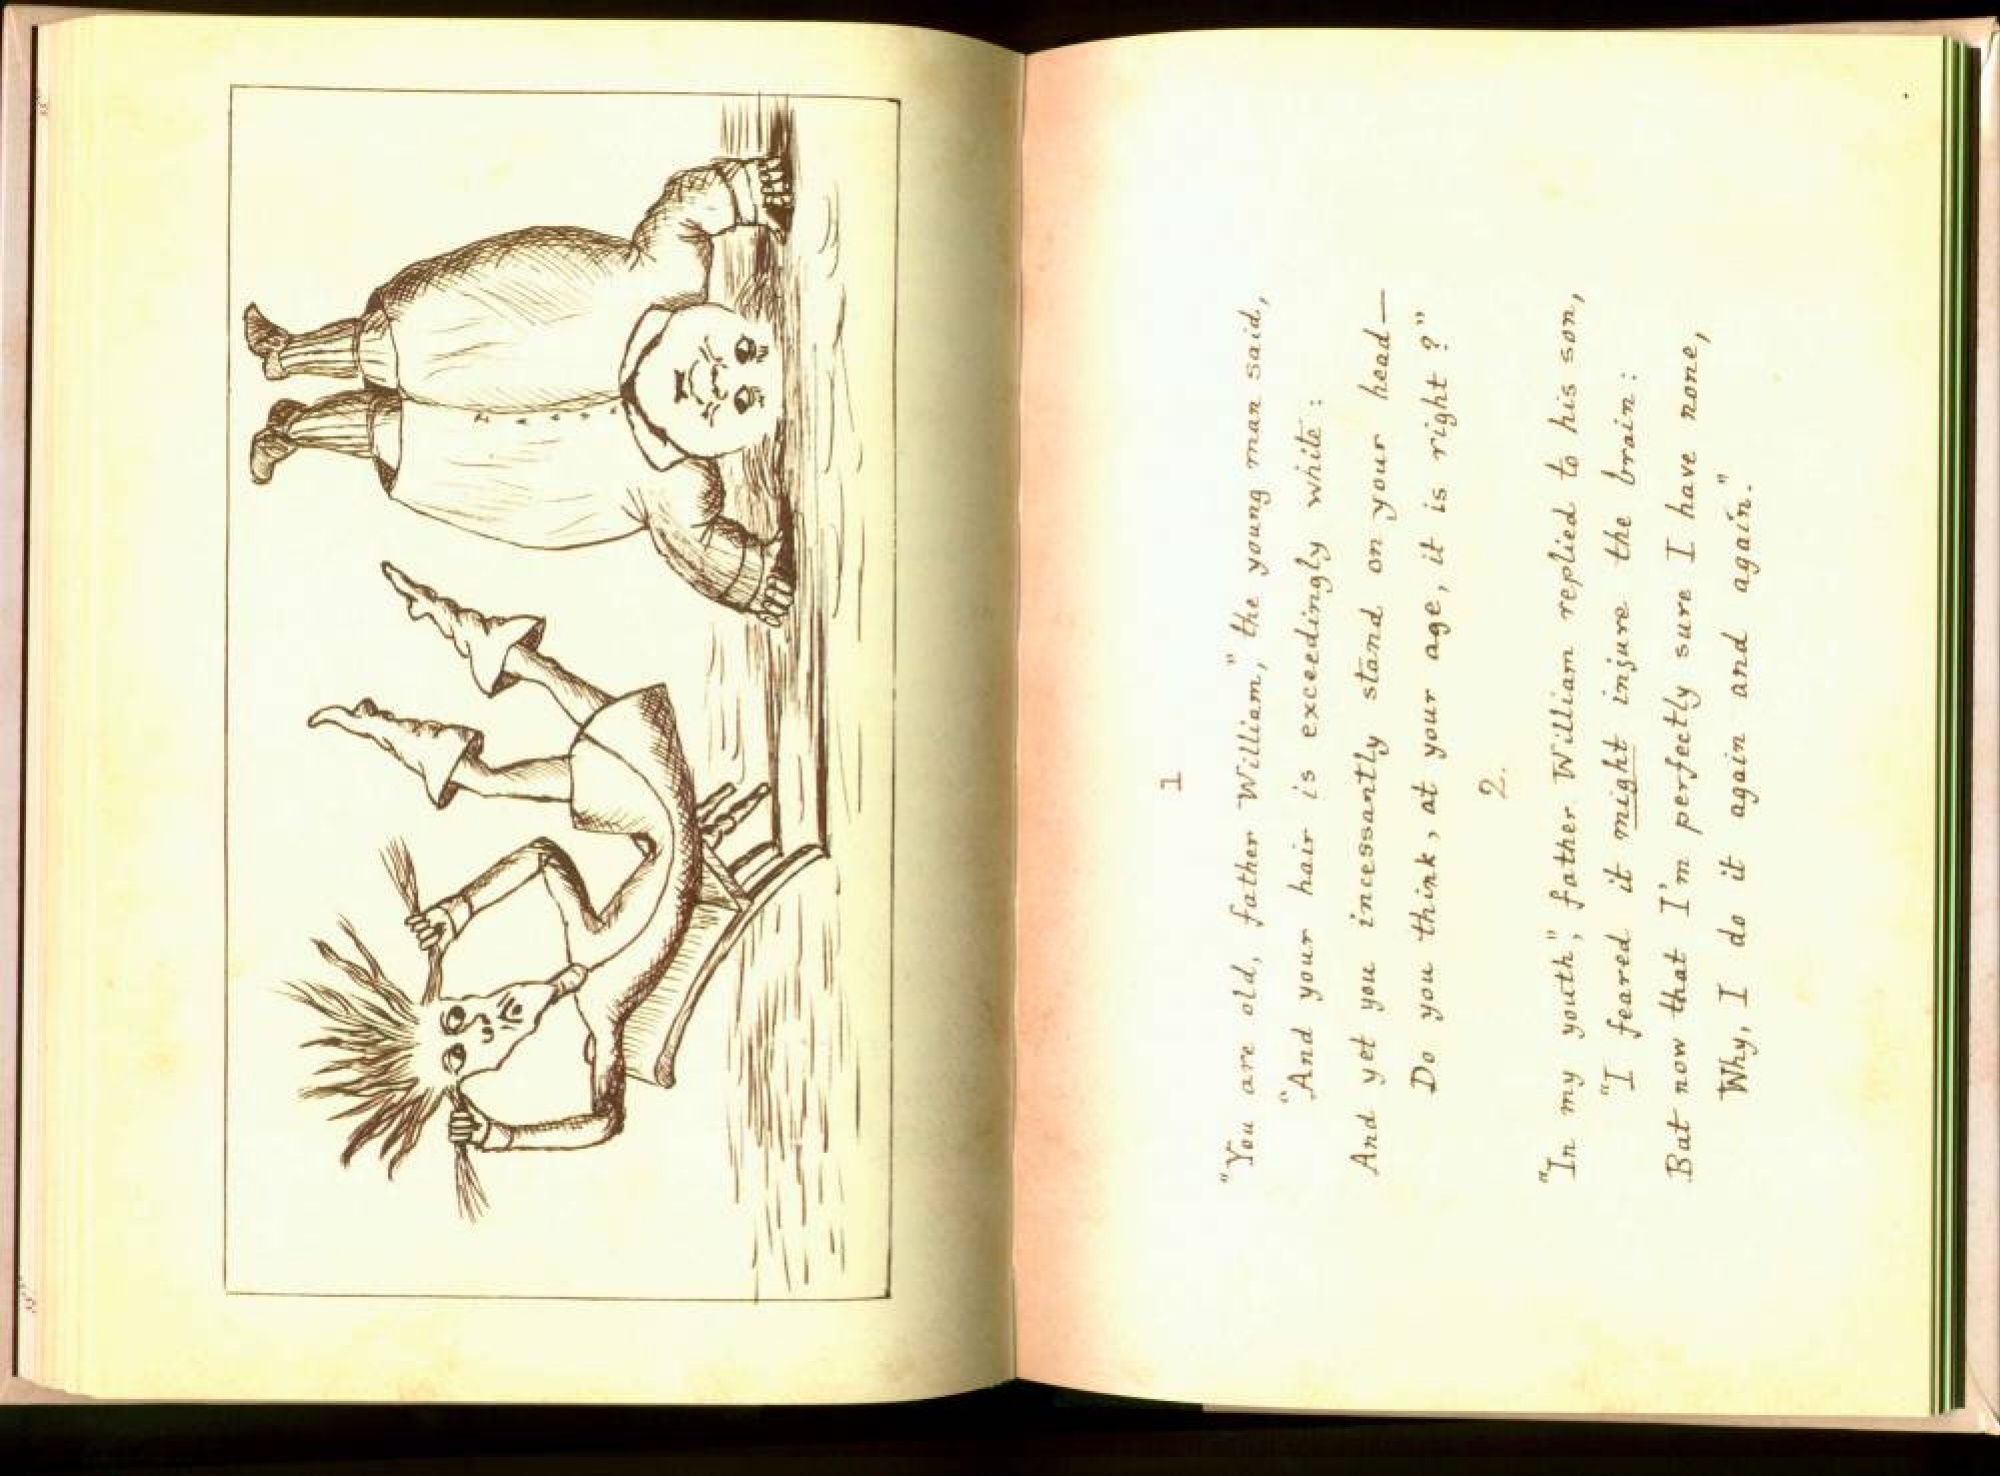 1
"You are old, father William," the young man said,
"And your hair is exceedingly white:
And yet you incessantly stand on your head—
Do you think, at your age, it is right?"
2.
"In my youth," father William replied to his son,
"I feared it might injure the brain:
But now that I'm perfectly sure I have none,
Why, I do it again and again."